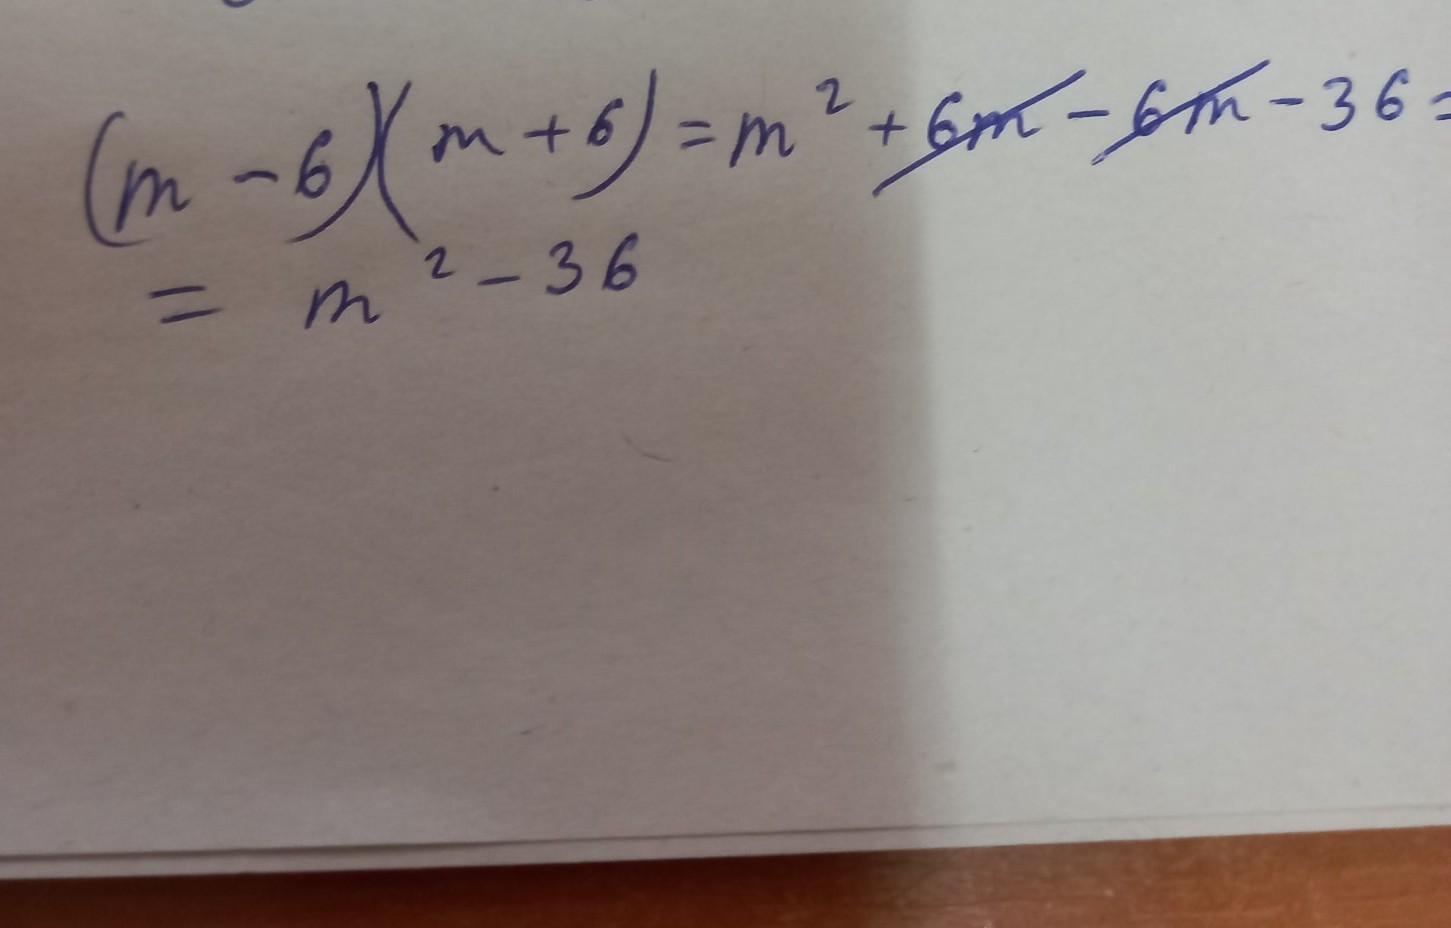 (m - 6)(m + 6) = m² + 6m - 6m - 36 =
= m² - 36